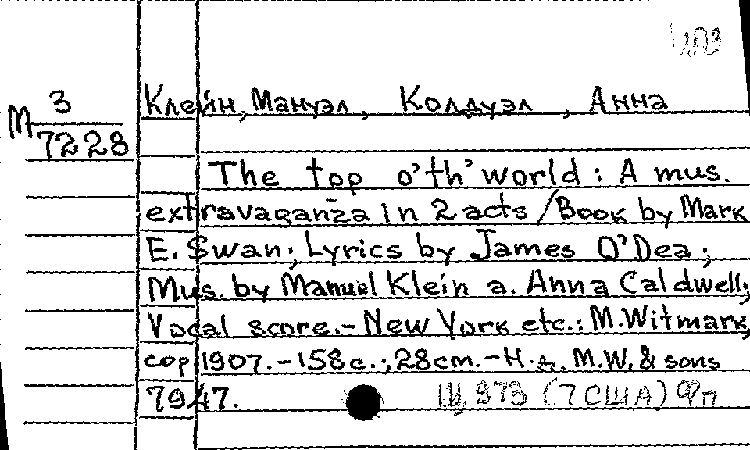 М 3/7228
Клейн, Мануэл, Колдуэл, Анна
The top o'th' world: A mus.
extravaganza in 2 acts / Book by Mark
E. Swan; Lyrics by James O'Dea;
Mus. by Manuel Klein a. Anna Caldwell;
Vocal score.- New York etc.: M. Witmark,
cop 1907.-158 с.; 28 cm.-Н. д. M.W. & sons
7947. Щ 973 (7 США) Фп